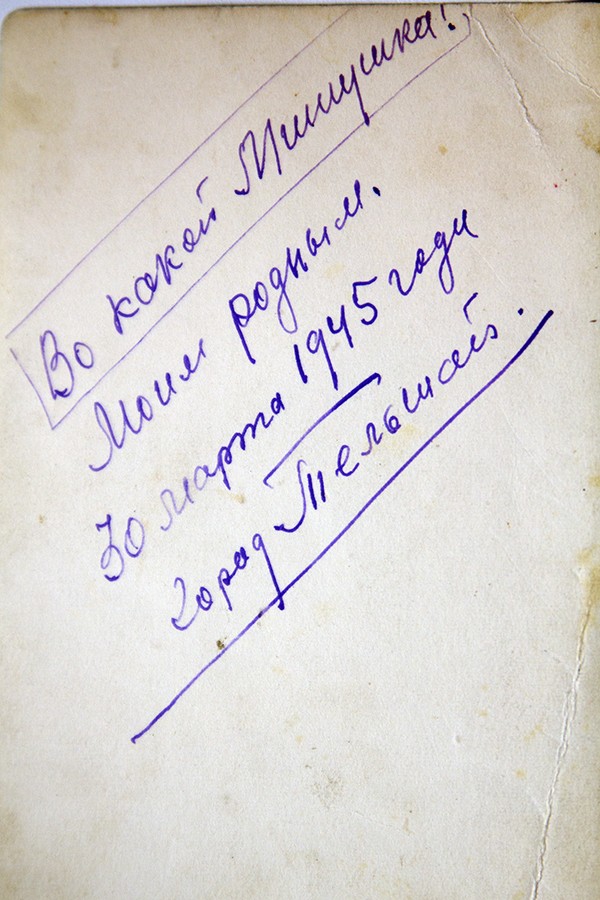 Во какой Мишушка!
Моим родным.
30 марта 1945 года
город Тельшай.